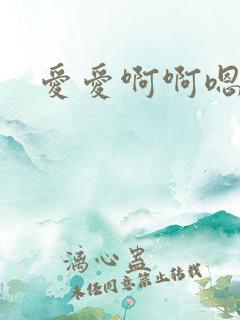 爱爱啊啊嗯
漓心蛊
未经同意禁止转载